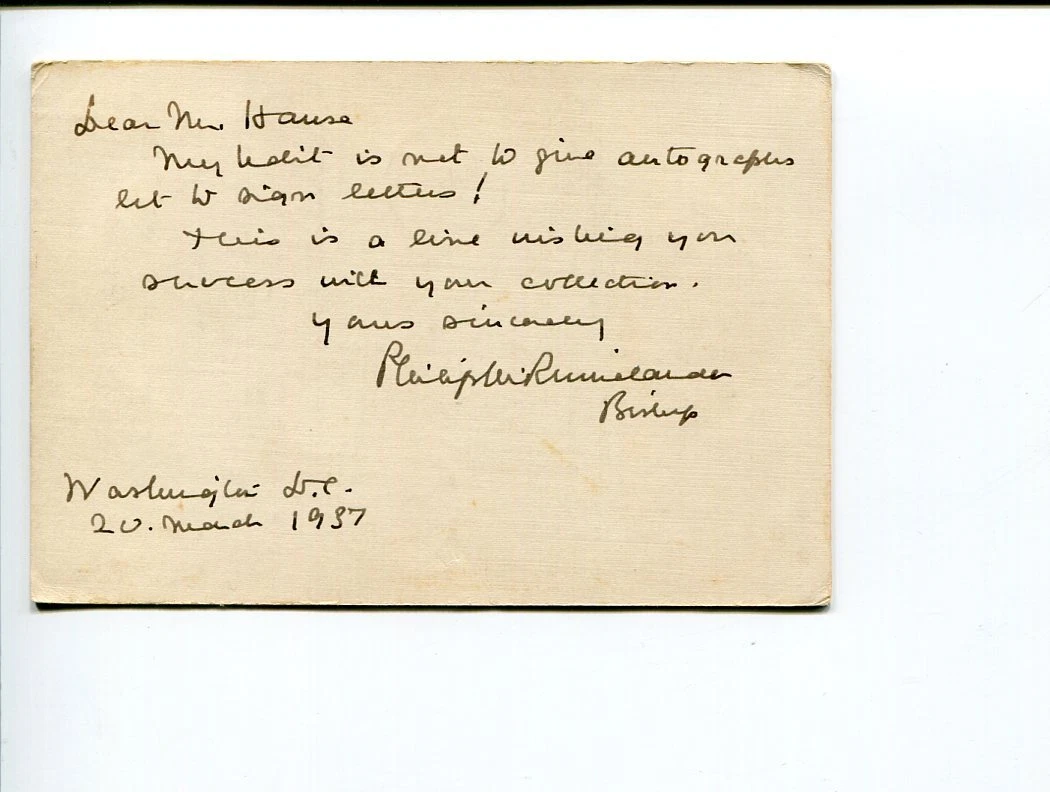 Dear Mr. Hause
My habit is not to give autographs
but to sign letters!
This is a line wishing you
success with your collection.
Yours sincerely
Philip M. Rhinelander
Bishop
Washington D.C.
20. March 1937